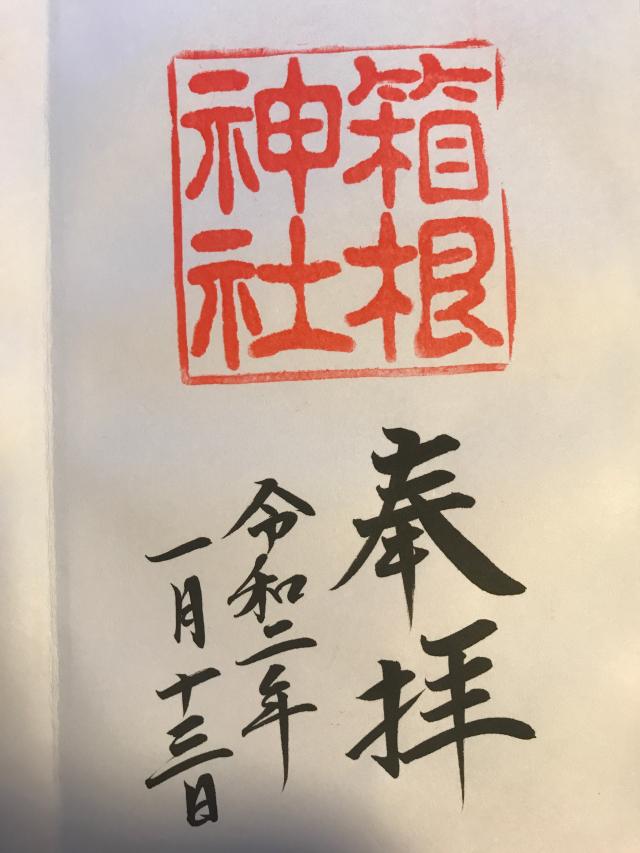 箱根
神社
奉拝
令和二年
一月十三日